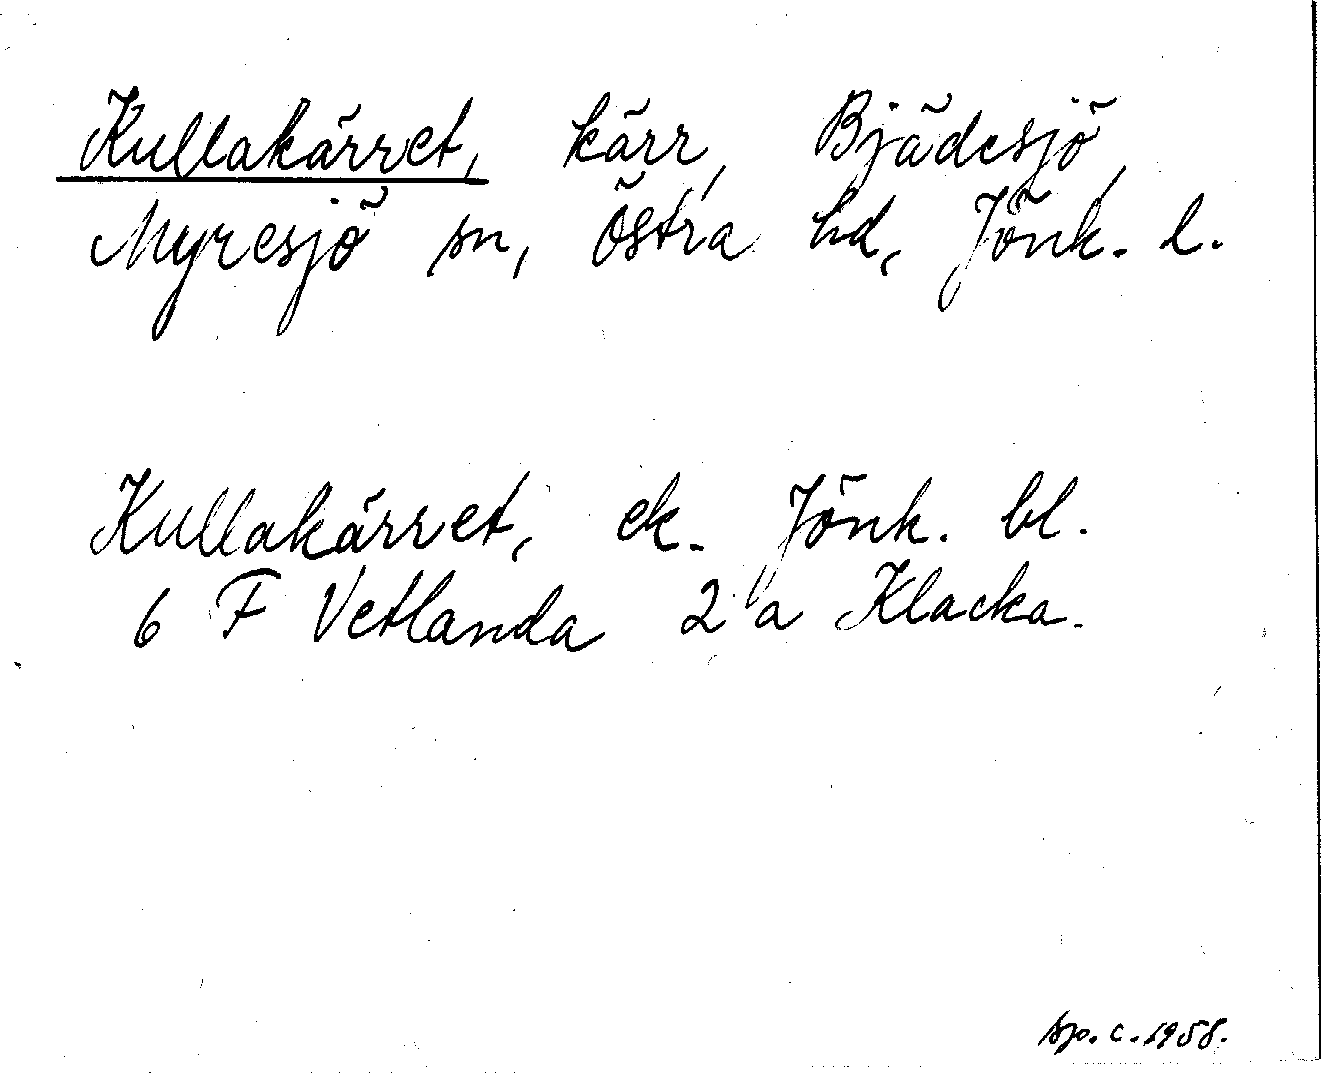 Kullakärret, kärr, Bjädesjö,
Myresjö sn, Östra hd, Jönk. l.
Kullakärret, ek. Jönk. bl.
6 F Vetlanda 2 a Klacka.
c. 1958.